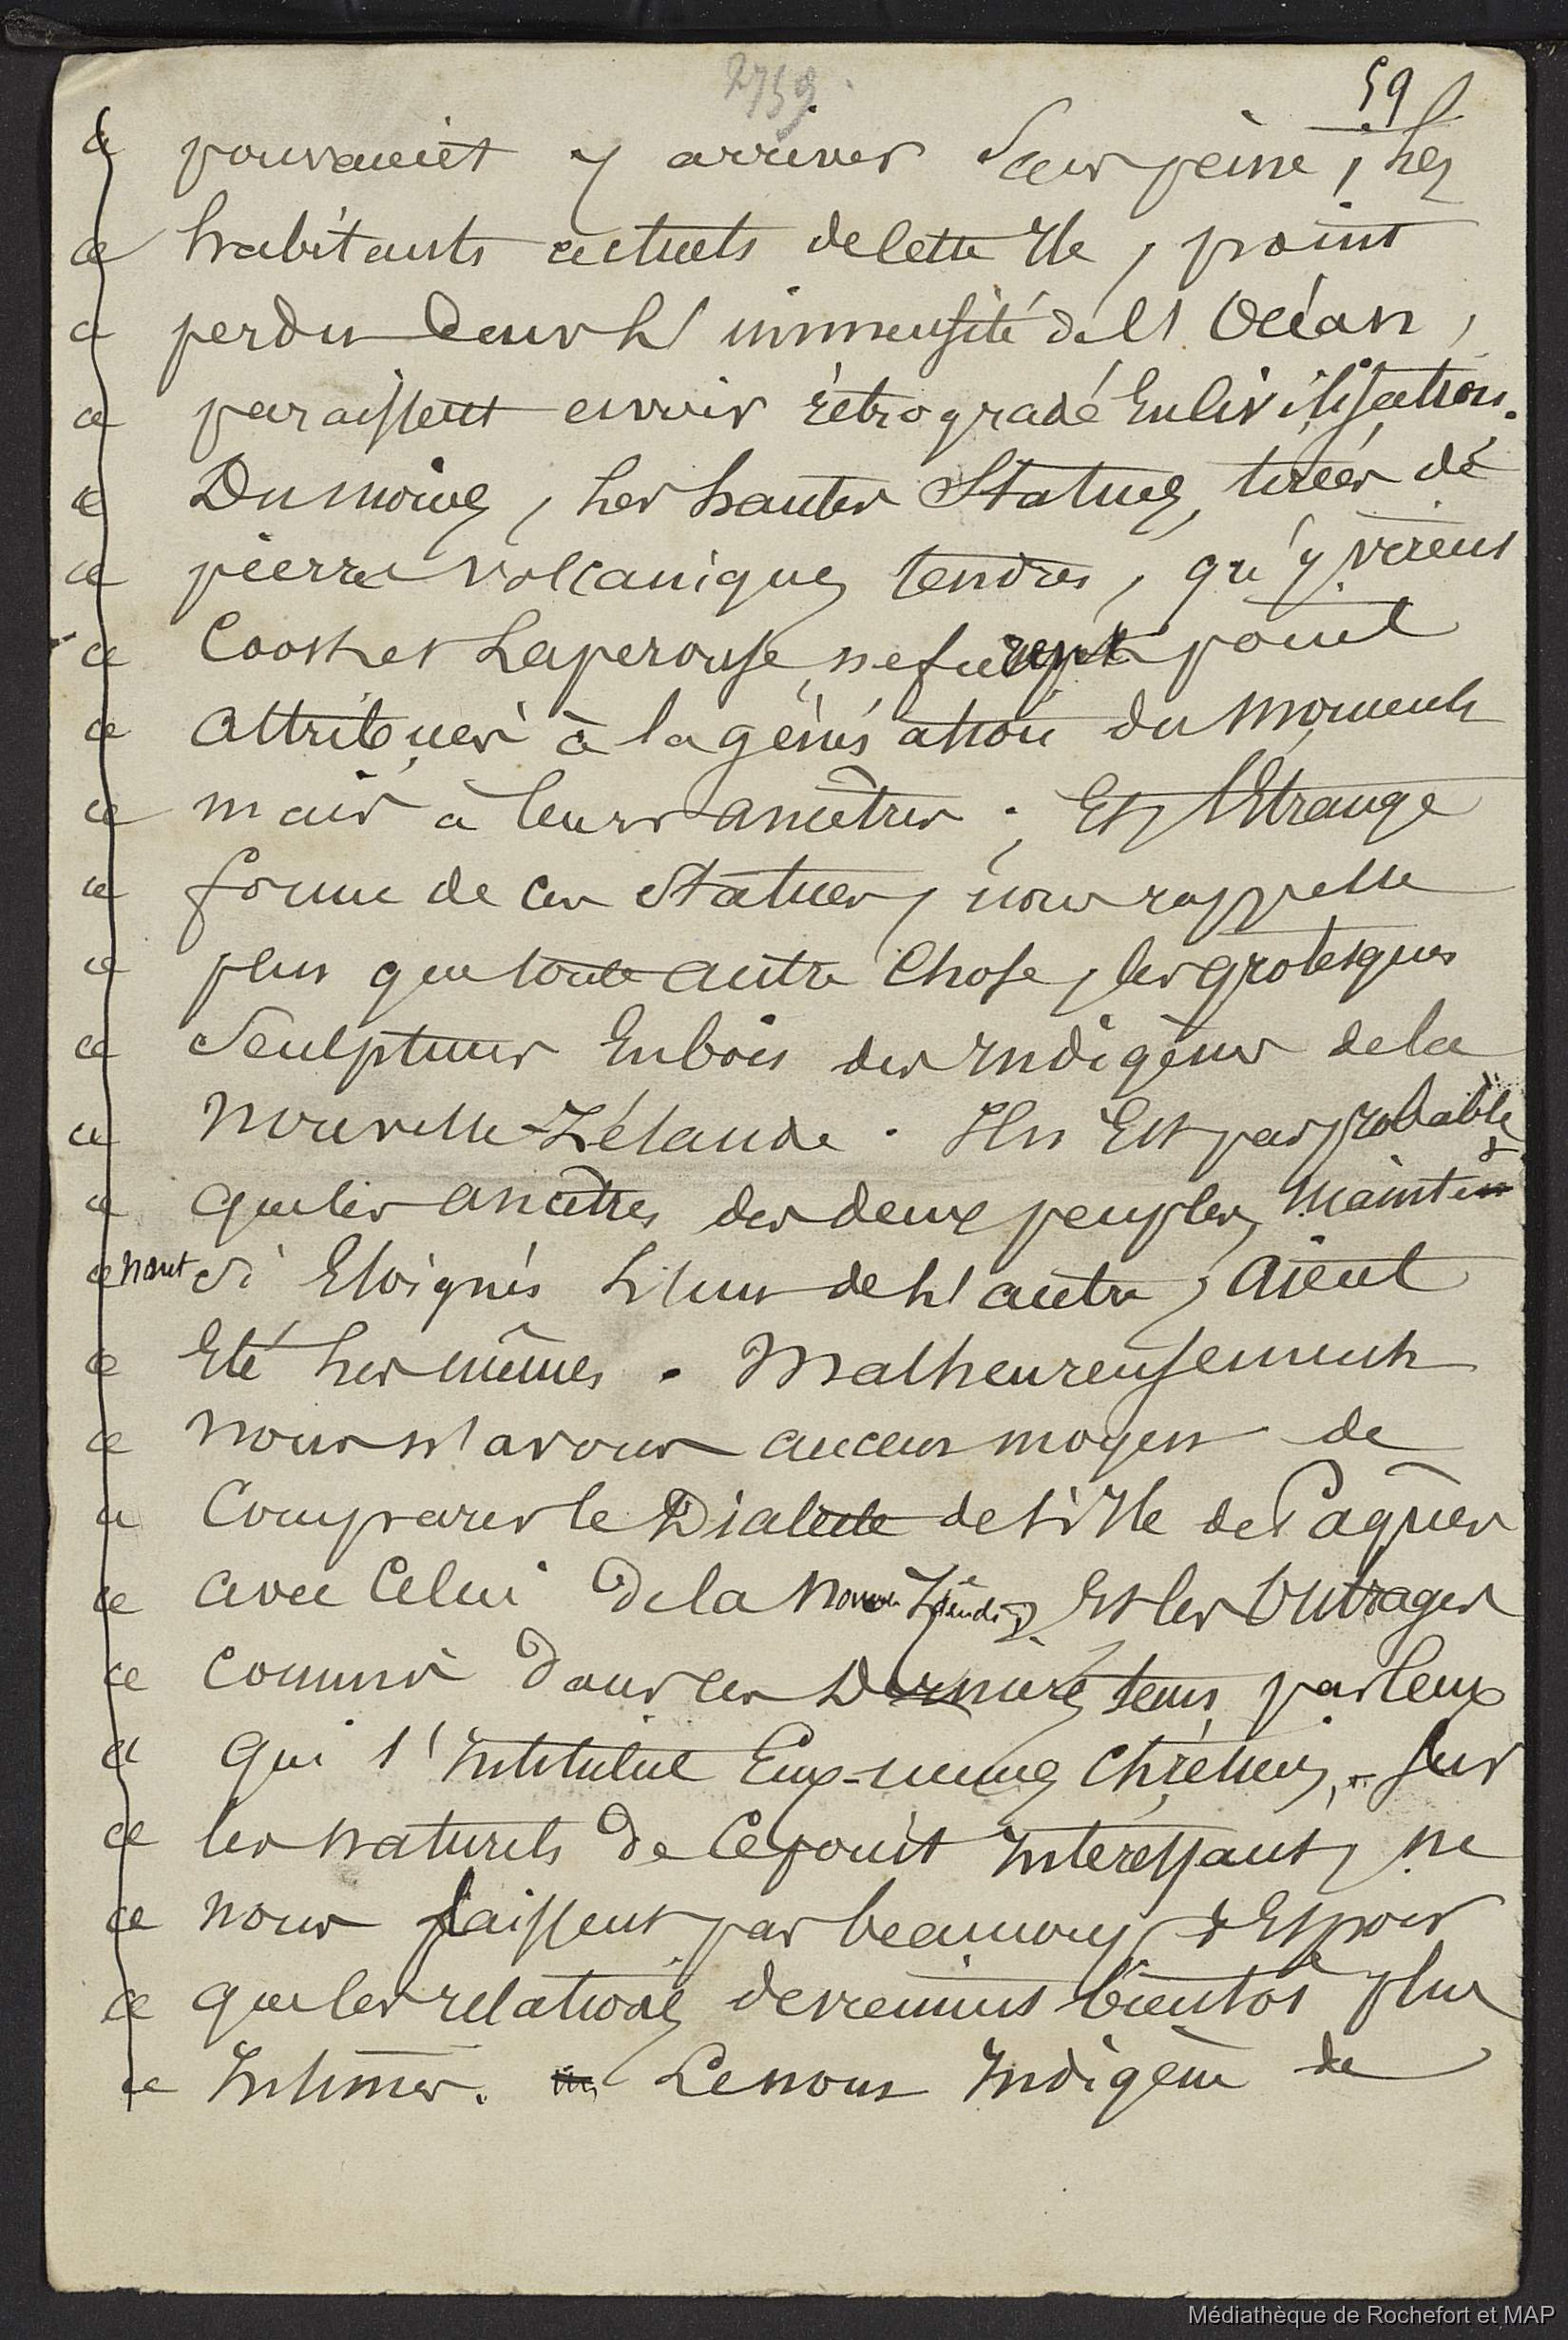 2759.
59
« pouvaient y arriver sans peine, Les
« habitants actuels de cette Ile, point
« perdu dans L'immensité de l'Océan,
« paraissent avoir rétrogradé En Civilisation.
« Du moins, Les hautes Statues, tirées de
« pierres volcaniques tendres, qu'y virent
« Cook et Laperouse, ne furent point
« attribuées à la génération du moment
« mais à leurs ancêtres ; Et l'Etrange
« forme de ces Statues, nous rappelle
« plus que toute autre Chose, les grotesques
« Sculptures En bois des Indigènes de la
« Nouvelle-Zélande. Il n'Est pas probable
« que les ancêtres des deux peuples, mainte
« nant si Eloignés L'un de L'autre, aient
« Eté Les mêmes. Malheureusement
« nous n'avons aucun moyen de
« Comparer le Dialecte de l'Ile de Pâques
« avec Celui de la Nouvelle Zélande, Et les Outrages
« commis dans ces Derniers tems par Ceux
« qui s'Intitulent Eux-mêmes Chrétiens, sur
« les naturels de Ce point Intéressant, ne
« nous laissent pas beaucoup d'Espoir
« que les relations deviennent bientôt plus
« Intimes. Le nom Indigène de
Médiathèque de Rochefort et MAP